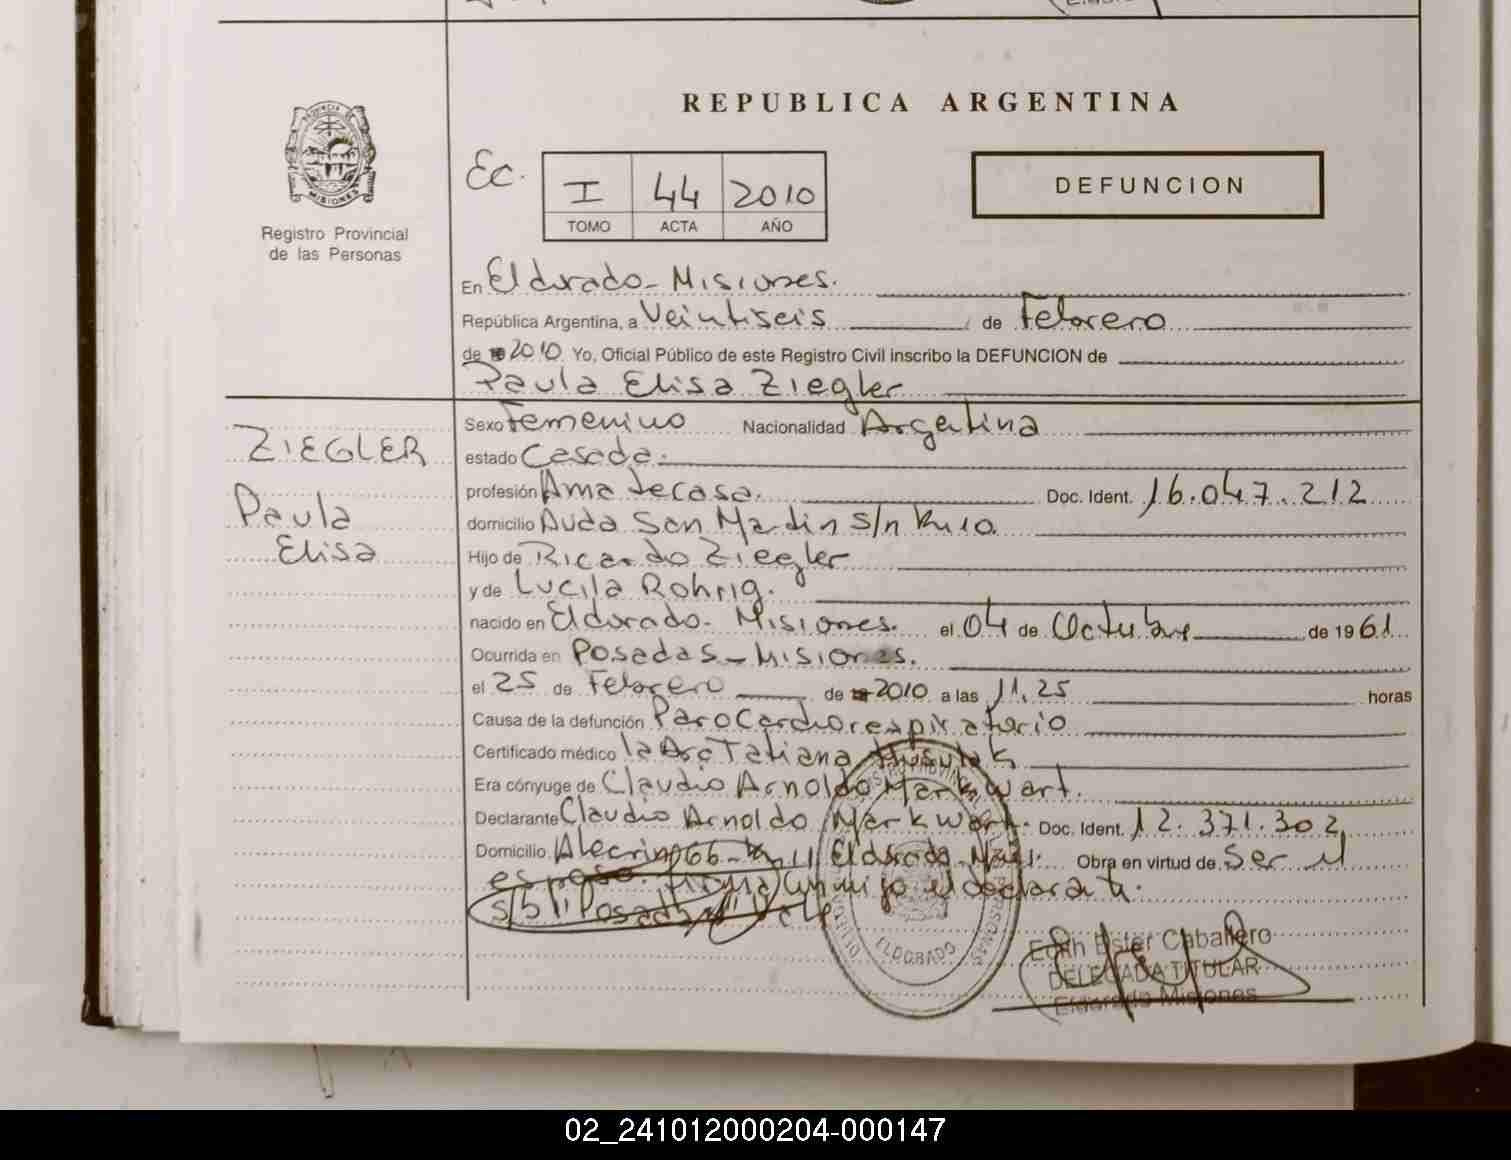 REPUBLICA ARGENTINA
Ec.
I 44 2010
TOMO ACTA AÑO
DEFUNCION
MISIONES
Registro Provincial
de las Personas
En Eldorado - Misiones.
República Argentina, a Veintiseis de Febrero
de 2010. Yo, Oficial Público de este Registro Civil inscribo la DEFUNCION de
Paula Elisa Ziegler
ZIEGLER
Paula
Elisa
Sexo Femenino Nacionalidad Argentina
estado Casada.
profesión Ama de casa. Doc. Ident. 16.047.212
domicilio Avda San Martin s/n Km 10
Hijo de Ricardo Ziegler
y de Lucila Rohrig.
nacido en Eldorado - Misiones. el 04 de Octubre de 1961
Ocurrida en Posadas - Misiones.
el 25 de Febrero de 2010 a las 11.25 horas
Causa de la defunción Paro Cardiorespiratorio
Certificado médico la Dra Tatiana
Era cónyuge de Claudio Arnoldo Markwart.
Declarante Claudio Arnoldo Markwart. Doc. Ident. 12.371.302
Domicilio Alecrin 066 - Km 11 Eldorado - Mnes. Obra en virtud de ser el
esposo. Firma conmigo el declarante.
S/b P. Posadas Vale
ELDORADO
Edith Ester Caballero
DELEGADA TITULAR
Eldorado Misiones
02_241012000204-000147